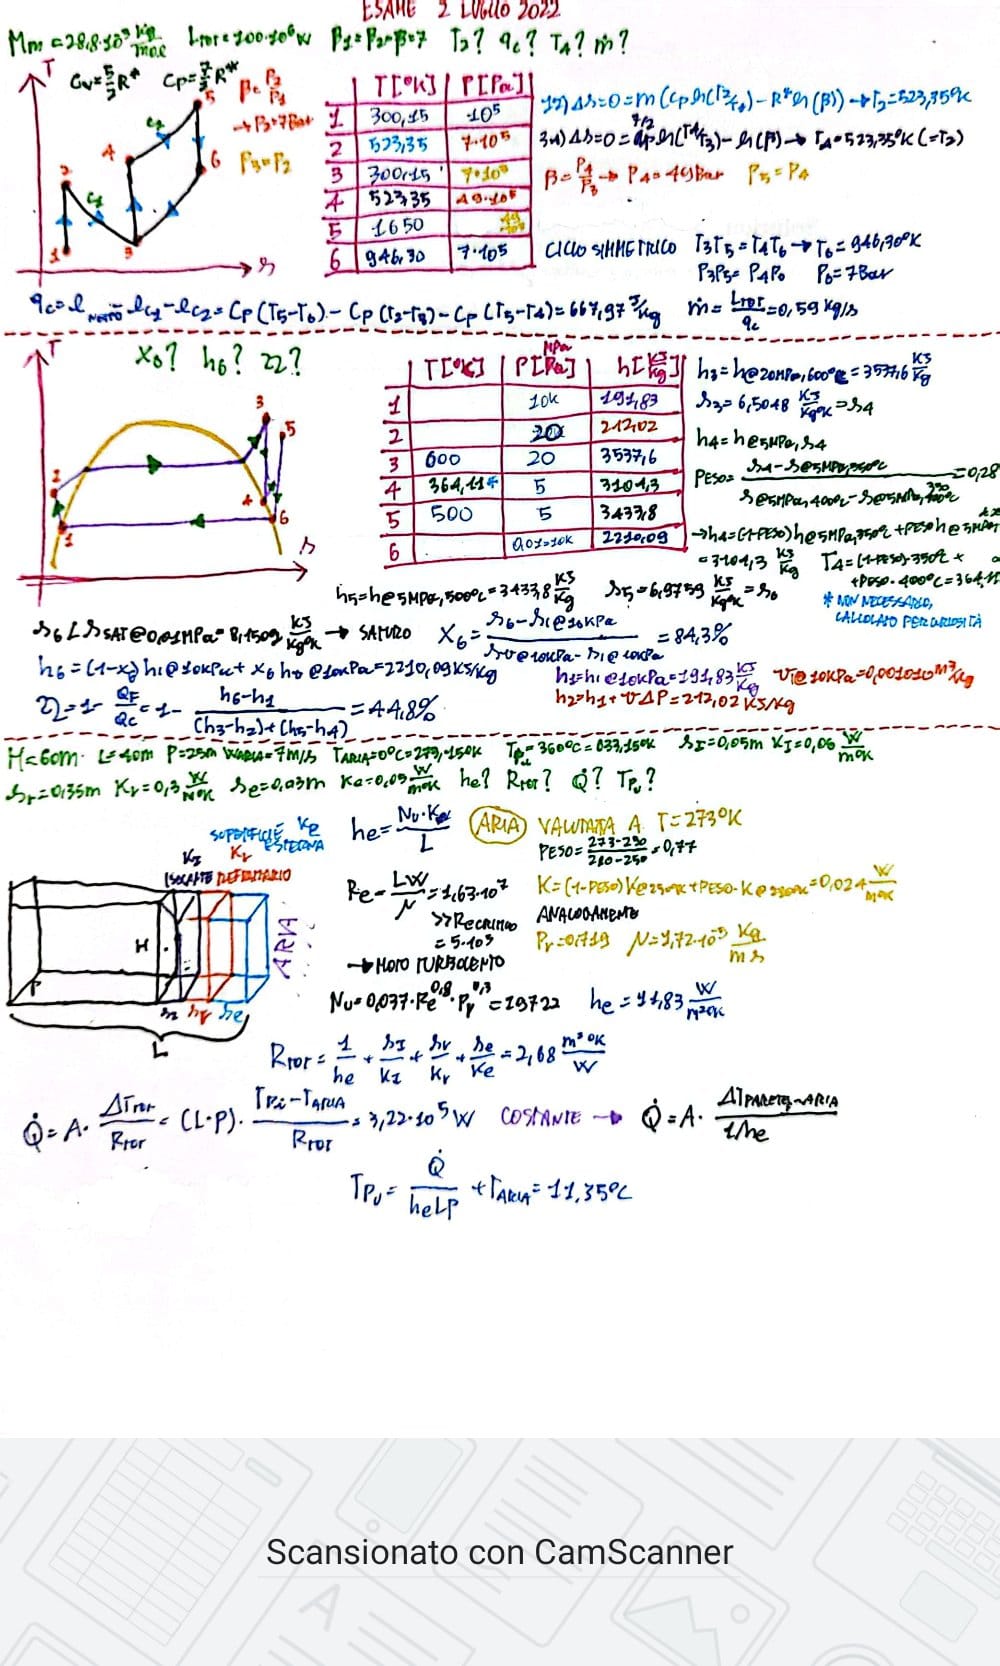 ESAME 2 LUGLIO 2022
Mm = 28,8·10⁻³ kg/mol Ltot = 100·10⁶ W β1 = β2 = β = 7 T2? qc? T4? ṁ?
T
Cv = 5/2 R* Cp = 7/2 R*
β = P2/P1
→ P2 = 7 Bar
P3 = P2
1 2 3 4 5 6
s
T[°K] P[Pa]
1 300,15 10⁵
2 523,35 7·10⁵
3 300,15 7·10⁵
4 523,35 49·10⁵
5 1650
6 946,30 7·10⁵
12) Δs = 0 = m (Cp ln(T2/T1) - R* ln(β)) → T2 = 523,35°K
34) Δs = 0 = 7/2 ln(T4/T3) - ln(β) → T4 = 523,35°K (=T2)
β = P4/P3 → P4 = 49 Bar P5 = P4
CICLO SIMMETRICO T3T5 = T4T6 → T6 = 946,30°K
P3P5 = P4P6 P6 = 7 Bar
Cp (T5-T6) - Cp (T2-T1) - Cp (T5-T4) = 667,97 J/kg ṁ = Ltot/qc = 0,59 kg/s
T
x6? h6? η?
1 2 3 4 5 6
s
T[°K] P[Pa] MPa h[kJ/kg]
1 10k 191,83
2 20 212,02
3 600 20 3537,6
4 364,11* 5 3104,3
5 500 5 3433,8
6 0,01=10k 2210,09
h3 = h@20MPa,600°C = 3537,6 kJ/kg
s3 = 6,5048 kJ/kg°K = s4
h4 = h@5MPa,s4
PESO = = 0,28
→ h4 = (1-PESO) h@5MPa,350°C + PESO h@5MPa
= 3104,3 kJ/kg T4 = (1-PESO)·350°C +
+PESO·400°C = 364,11
* NON NECESSARIO,
CALCOLATO PER CURIOSITÀ
h5 = h@5MPa,500°C = 3433,8 kJ/kg s5 = 6,9759 kJ/kg°K = s6
s6 < sSAT@0,01MPa = 8,1502 kJ/kg°K → SATURO x6 = (s6 - sl@10kPa)/(sv@10kPa - sl@10kPa) = 84,3%
h6 = (1-x6) hl@10kPa + x6 hv@10kPa = 2210,09 kJ/kg
h1 = hl@10kPa = 191,83 kJ/kg vl@10kPa = 0,001010 m³/kg
h2 = h1 + vΔP = 212,02 kJ/kg
η = 1 - QF/QC = 1 - (h6-h1)/((h3-h2)+(h5-h4)) = 44,8%
H = 60m L = 40m P = 25m WARIA = 7 m/s TARIA = 0°C = 273,150K TPi = 360°C = 633,150K sI = 0,05m KI = 0,06 W/m°K
sr = 0,35m Kr = 0,3 W/m°K se = 0,03m Ke = 0,05 W/m°K he? Rtot? Q̇? TPU?
KI
ISOLANTE
Kr
REFRATTARIO
SUPERFICIE Ke
ESTERNA
H
P
L
sr se
ARIA
he = Nu·K/L
ARIA VALUTATA A T = 273°K
PESO = = 0,77
Re = LW/μ = 1,63·10⁷
>> Recritico
= 5·10⁵
→ MOTO TURBOLENTO
= 0,024 W/m°K
ANALOGAMENTE
Pr = 0,719 μ = 1,72·10⁻⁵ kg/ms
Nu = 0,037·Re^0,8·Pr^0,3 = 19722 he = 11,83 W/m²°K
Rtot = 1/he + sI/KI + sr/Kr + se/Ke = 2,68 m²°K/W
Q̇ = A· ΔTtot/Rtot = (L·P)· (TPi-TARIA)/Rtot = 3,22·10⁵ W COSTANTE → Q̇ = A· ΔTPARETE-ARIA/(1/he)
TPU = Q̇/(heLP) + TARIA = 11,35°C
Scansionato con CamScanner